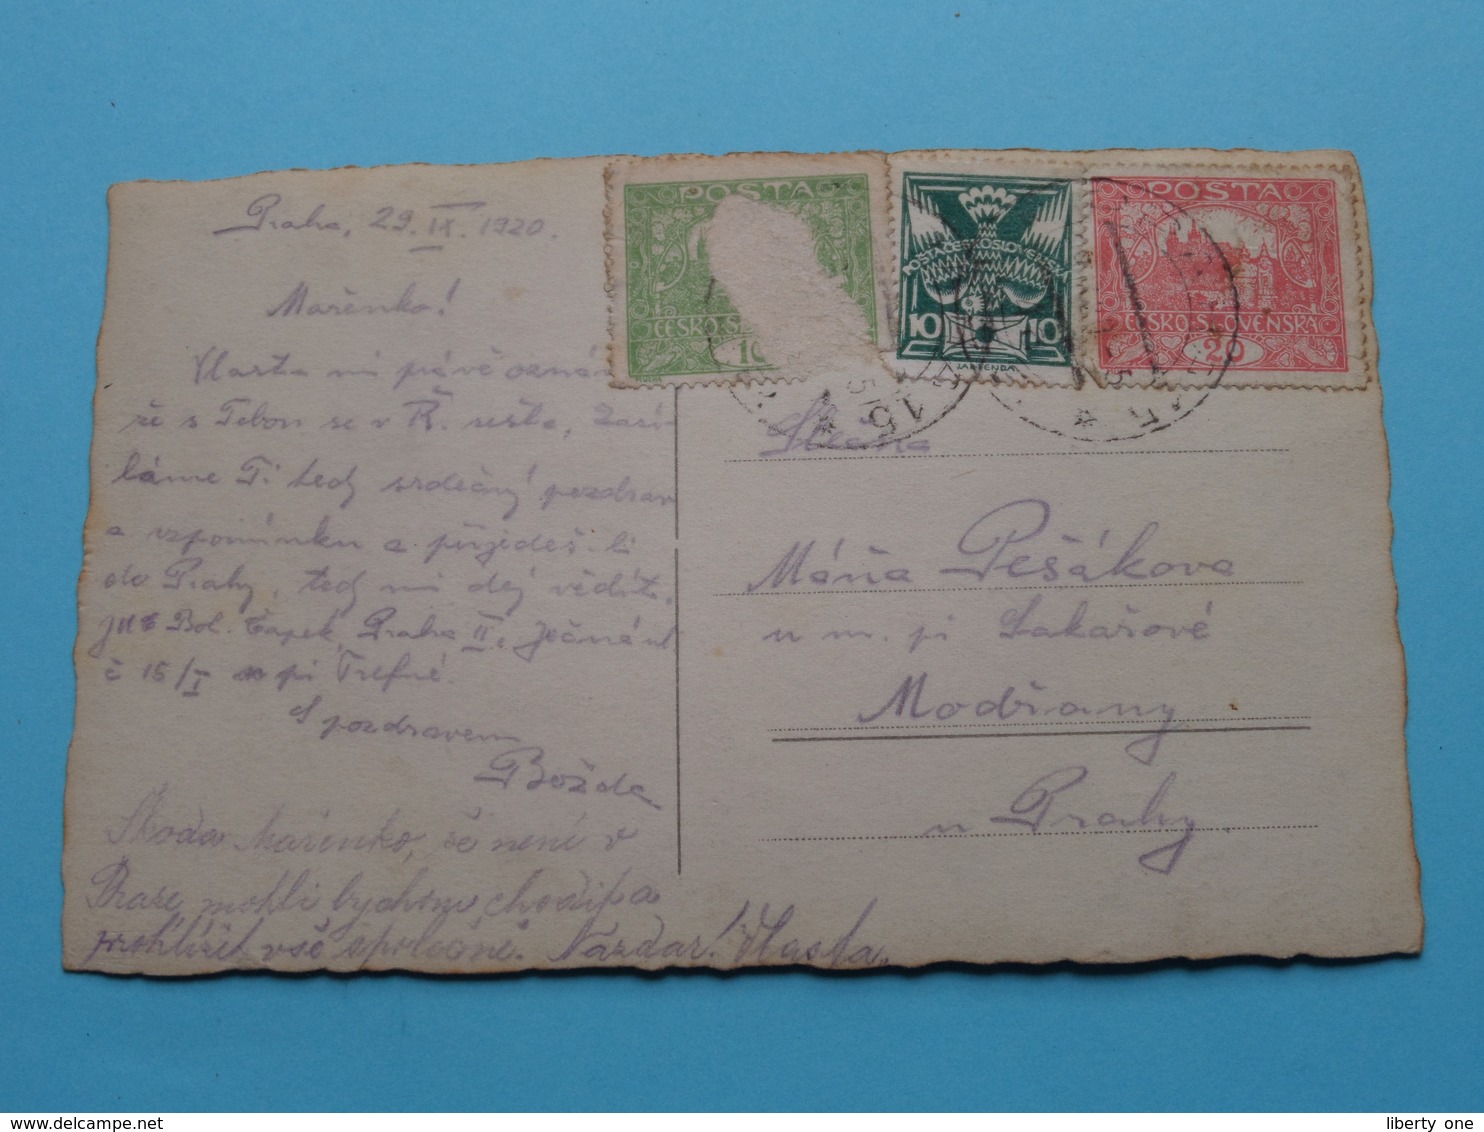 Praha, 29. IX. 1920.
Mařenko!
Vlasta mi právě oznám
že s Tebou se v Ř. sešla, Zasí-
láme Ti tedy srdečný pozdrav
a vzpomínku a přijedeš-li
do Prahy, tedy mi dej vědět.
Bol. Čapek, Praha II., Ječná ul
č 15/I pí Trefné.
S pozdravem
Božda
Škoda Mařenko, že není v
Praze, mohli bychom choditi a
prohlížet vše společně. Nazdar! Vlasta.
POSTA
ČESKO-S
10
POŠTA ČESKOSLOVENSKÁ
10 10
POSTA
ČESKO-SLOVENSKÁ
20
15
Slečna
Máňa Pešákova
u m. pí Sakařové
Modřany
u Prahy
liberty one